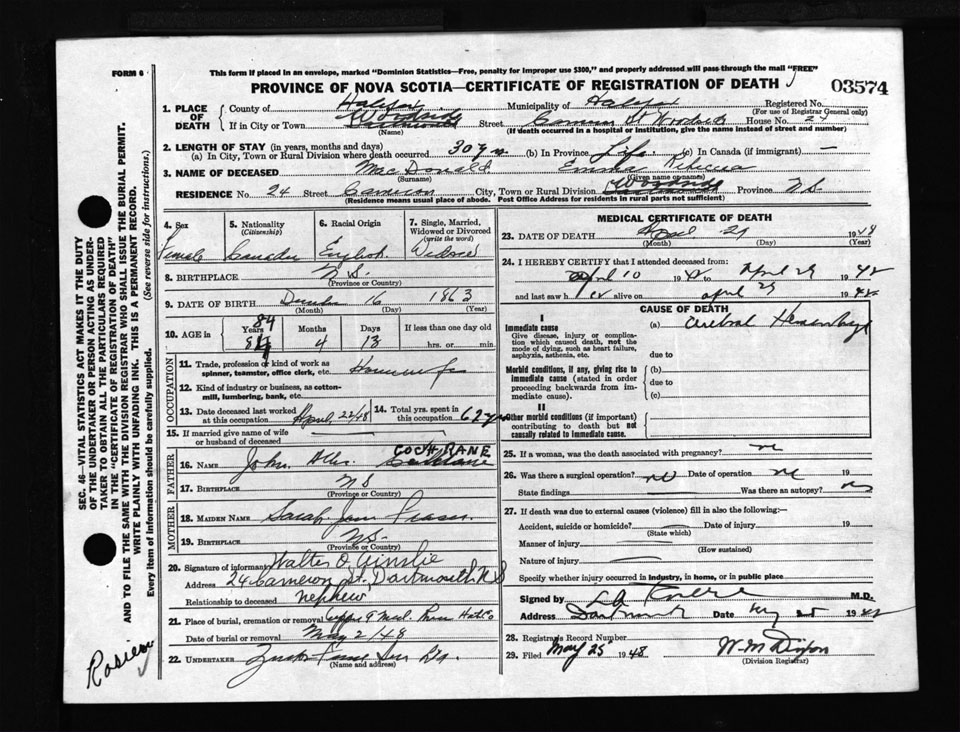 FORM 6
This form if placed in an envelope, marked "Dominion Statistics—Free, penalty for improper use $300," and properly addressed will pass through the mail "FREE"
PROVINCE OF NOVA SCOTIA—CERTIFICATE OF REGISTRATION OF DEATH
03574
1. PLACE OF DEATH
County of Halifax Municipality of Halifax Registered No.
(For use of Registrar General only)
If in City or Town Woodside Dartmouth Street Cameron St Woodside House No. 24
(Name) (If death occurred in a hospital or institution, give the name instead of street and number)
2. LENGTH OF STAY (in years, months and days)
(a) In City, Town or Rural Division where death occurred 30 yrs (b) In Province Life (c) In Canada (if immigrant) —
3. NAME OF DECEASED MacDonald Emma Rebecca
(Surname) (Given name or names)
RESIDENCE No. 24 Street Cameron City, Town or Rural Division Woodside Province N.S.
(Residence means usual place of abode. Post Office Address for residents in rural parts not sufficient)
4. Sex Female
5. Nationality (Citizenship) Canadian
6. Racial Origin English
7. Single, Married, Widowed or Divorced (write the word) Widowed
8. BIRTHPLACE N.S.
(Province or Country)
9. DATE OF BIRTH 16 1863
(Month) (Day) (Year)
10. AGE in 84 Years 4 Months 13 Days If less than one day hrs. or min.
OCCUPATION
11. Trade, profession or kind of work as spinner, teamster, office clerk, etc. Housewife
12. Kind of industry or business, as cotton-mill, lumbering, bank, etc.
13. Date deceased last worked at this occupation April 22/48
14. Total yrs. spent in this occupation 62 yrs
15. If married give name of wife or husband of deceased
FATHER
16. NAME John COCHRANE
17. BIRTHPLACE N S
(Province or Country)
MOTHER
18. MAIDEN NAME Sarah Jane Fraser
19. BIRTHPLACE N.S.
(Province or Country)
20. Signature of informant Walter O. Ainslie
Address 24 Cameron St. Dartmouth N S
Relationship to deceased nephew
21. Place of burial, cremation or removal Upper Musq. Hal. Co
Date of burial or removal May 2/48
22. UNDERTAKER
(Name and address)
MEDICAL CERTIFICATE OF DEATH
23. DATE OF DEATH April 29 1948
(Month) (Day) (Year)
24. I HEREBY CERTIFY that I attended deceased from:
April 10 1948 to April 29 1948
and last saw her alive on April 29 1948
CAUSE OF DEATH
I
Immediate cause
Give disease, injury or complication which caused death, not the mode of dying, such as heart failure, asphyxia, asthenia, etc.
(a) Cerebral Hemorrhage
due to
Morbid conditions, if any, giving rise to immediate cause (stated in order proceeding backwards from immediate cause).
(b)
due to
(c)
II
Other morbid conditions (if important) contributing to death but not causally related to immediate cause.
25. If a woman, was the death associated with pregnancy? no
26. Was there a surgical operation? no Date of operation no 19
State findings Was there an autopsy? no
27. If death was due to external causes (violence) fill in also the following:—
Accident, suicide or homicide? Date of injury 19
(State which)
Manner of injury
(How sustained)
Nature of injury
Specify whether injury occurred in industry, in home, or in public place
Signed by M.D.
Address Dartmouth Date 1948
28. Registrar's Record Number
29. Filed May 25 1948 W. M. Dixon
(Division Registrar)
SEC. 46—VITAL STATISTICS ACT MAKES IT THE DUTY OF THE UNDERTAKER OR PERSON ACTING AS UNDERTAKER TO OBTAIN ALL THE PARTICULARS REQUIRED IN THE "CERTIFICATE OF REGISTRATION OF DEATH" AND TO FILE THE SAME WITH THE DIVISION REGISTRAR WHO SHALL ISSUE THE BURIAL PERMIT.
WRITE PLAINLY WITH UNFADING INK. THIS IS A PERMANENT RECORD.
Every item of information should be carefully supplied. (See reverse side for instructions.)